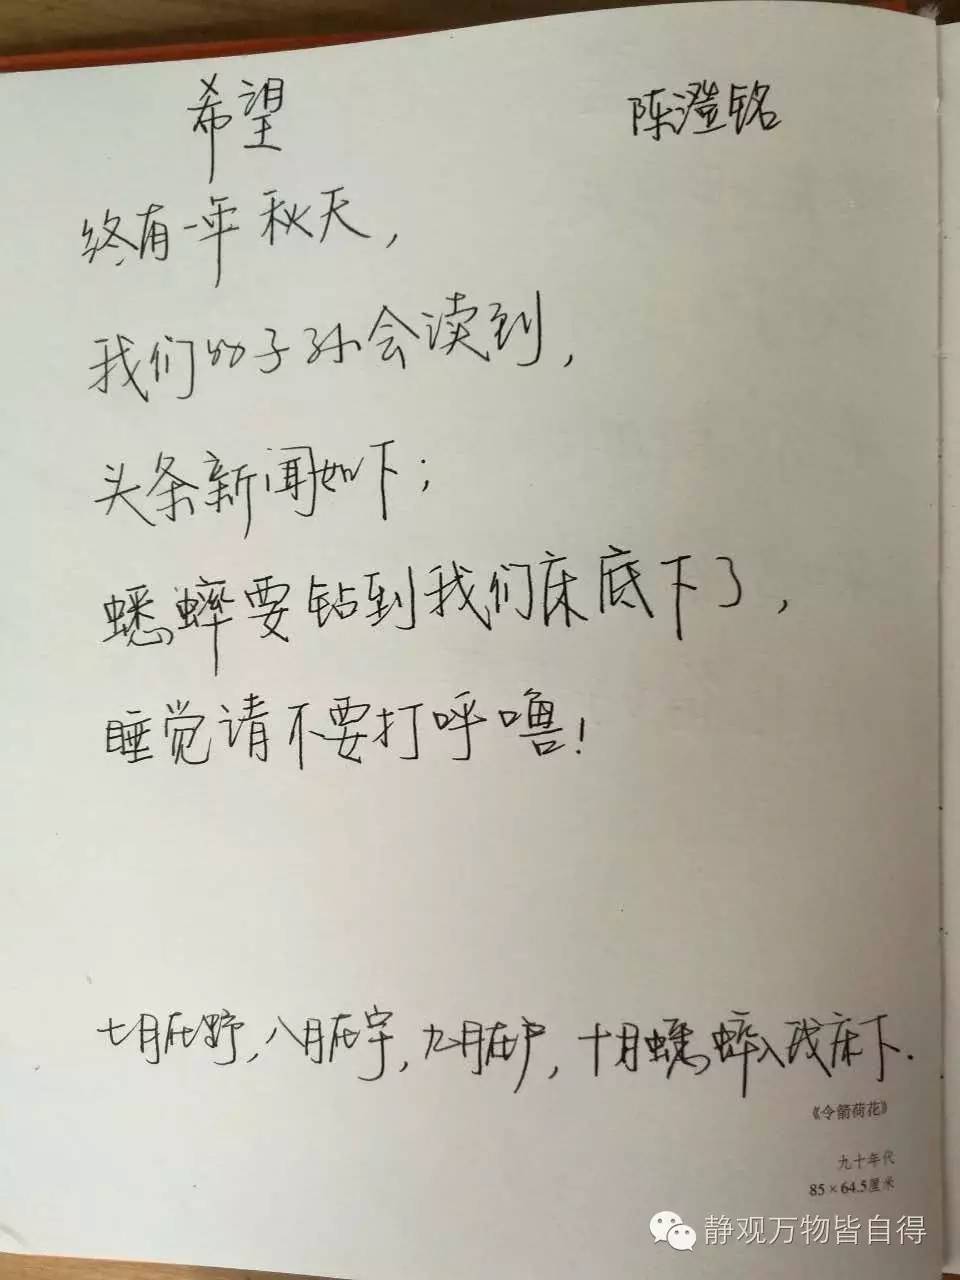 希望 陈澄铭
终有一年秋天，
我们的子孙会读到，
头条新闻如下；
蟋蟀要钻到我们床底下了，
睡觉请不要打呼噜！
七月在野，八月在宇，九月在户，十月蟋蟀入我床下.
《令箭荷花》
九十年代
85×64.5厘米
静观万物皆自得